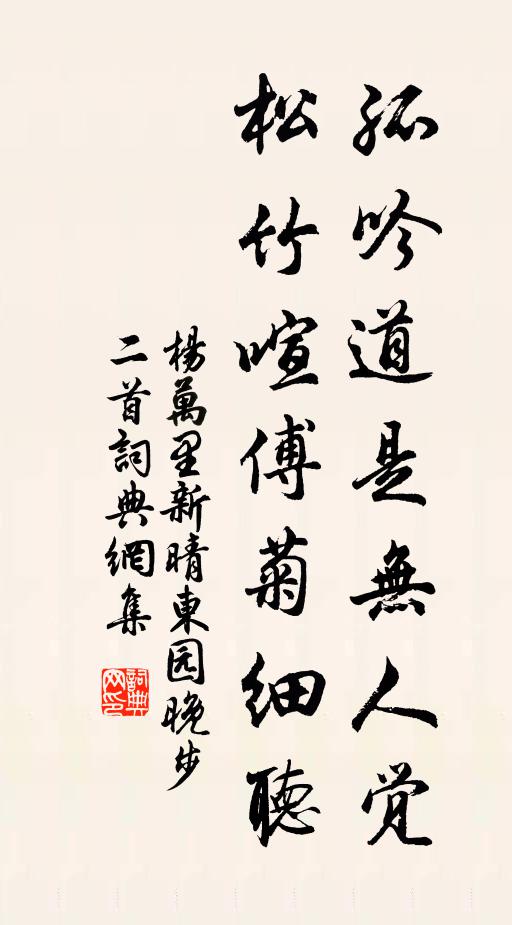 孤吟道是無人觉
松竹喧傅菊细聽
楊萬里新晴東园晚步
二首詞典網集
詞典网印